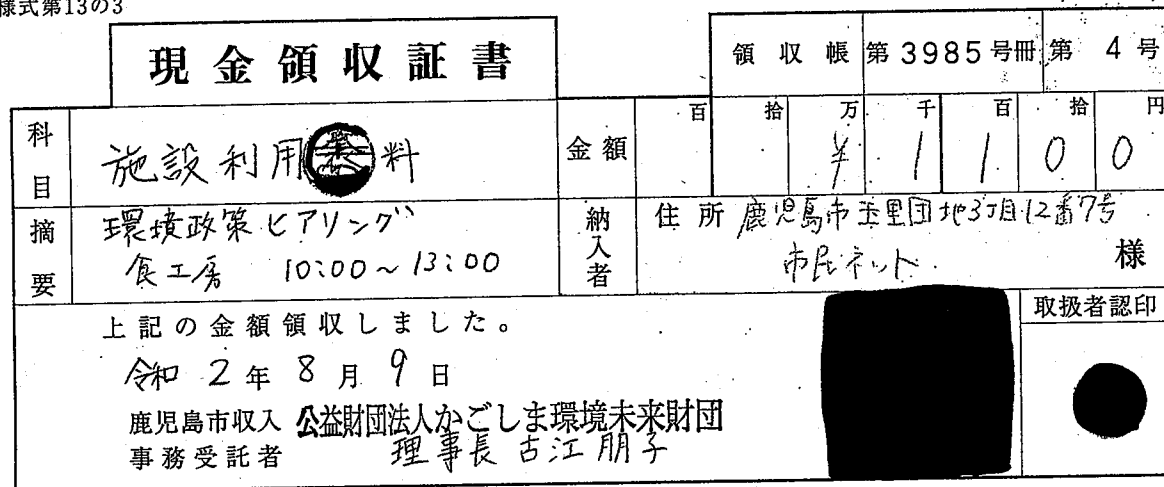 様式第13の3
現金領収証書
領収帳 第3985号冊 第4号
科目 施設利用料
金額 百 拾 万 千 百 拾 円
¥1100
摘要 環境政策ヒアリング
食工房 10:00~13:00
納入者 住所 鹿児島市玉里団地3丁目12番7号
市民ネット 様
上記の金額領収しました。
取扱者認印
令和2年8月9日
鹿児島市収入 公益財団法人かごしま環境未来財団
事務受託者 理事長 古江朋子